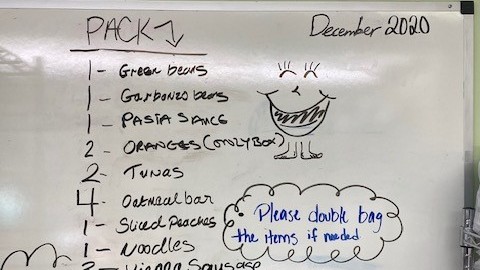 PACK
December 2020
1 - Green beans
1 - Garbonzo beans
1 - PASTA SAUCE
2 - ORANGES (ONLY BOX)
2 - TUNAS
4 - Oatmeal bar
1 - Sliced Peaches
1 - Noodles
Vienna Sausage
Please double bag
the items if needed